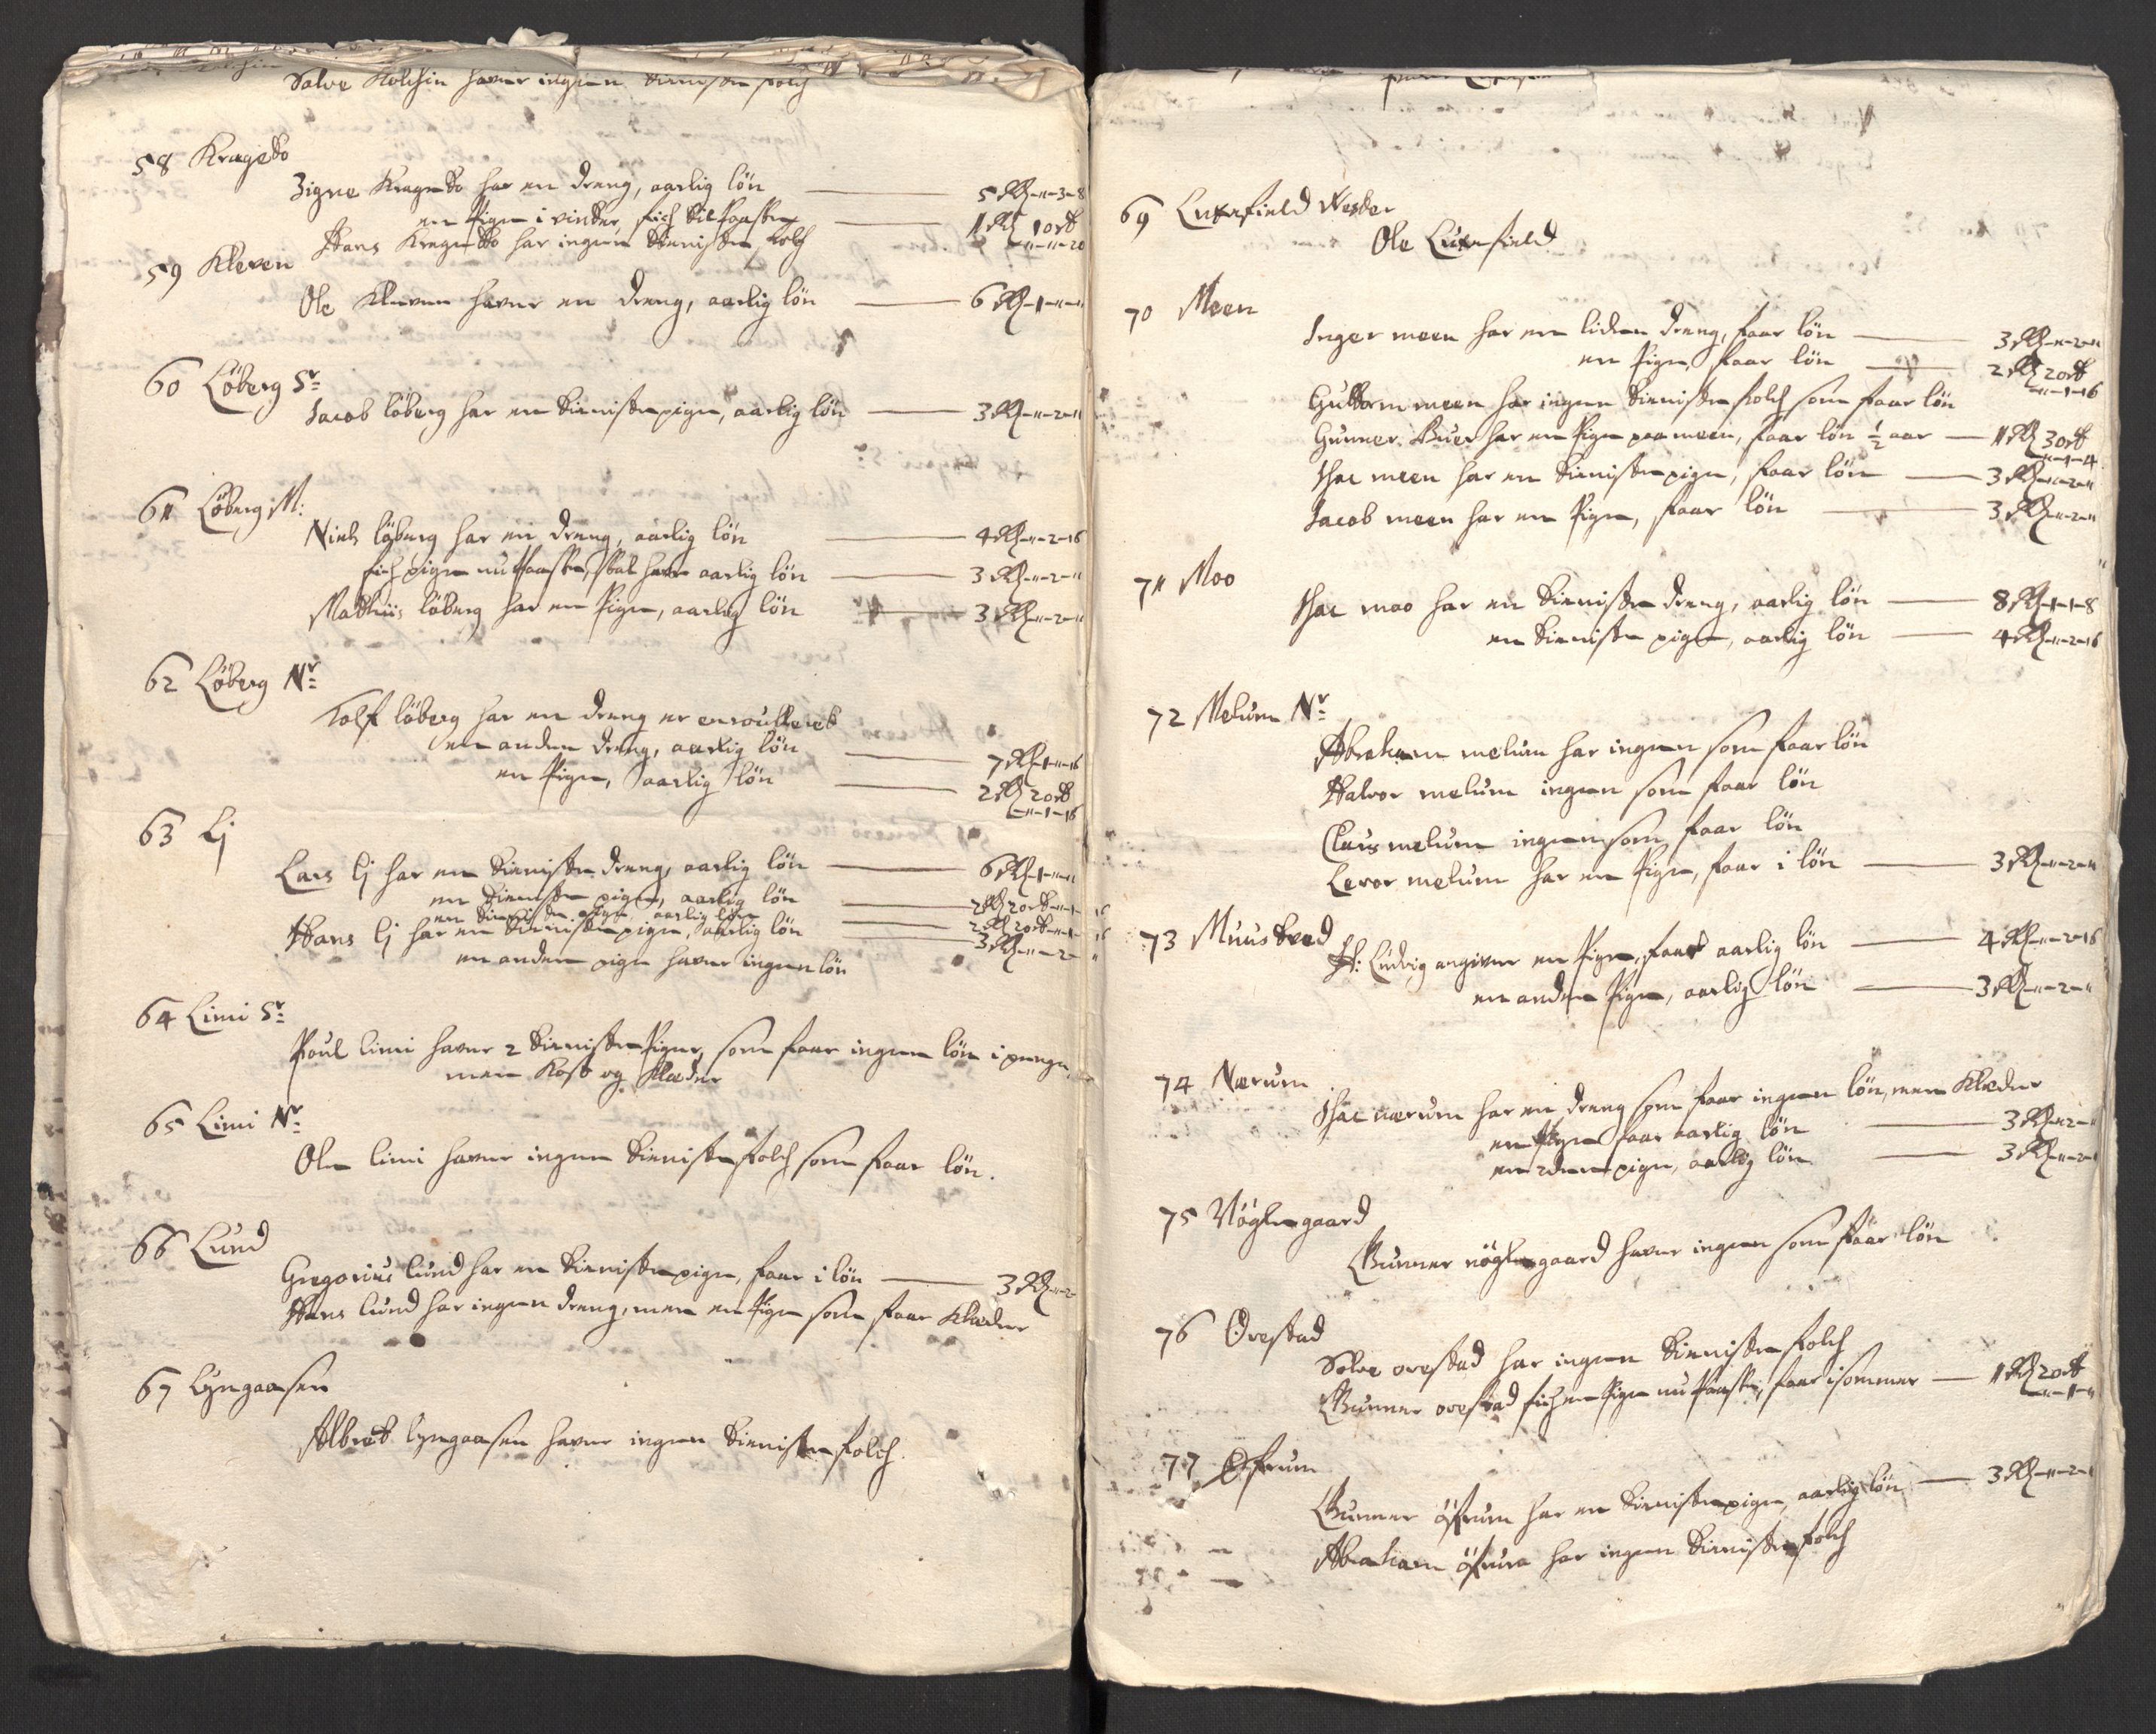 Salve Kolchin hafver ingen tienisten folch
58 Kragebo
Zigne Kragebo har en dreng, aarlig lön — 5 Rd-"-3-8
en Pige i vinter, fich til Paaske — 1 Rd 1 ort
"-"-20
Hans Kragebo har ingen tieniste folch
59 Kleven
Ole Kleven hafver en dreng, aarlig lön — 6 Rd-1-"-"
60 Löberg Sr
Jacob löberg har en tienistepige, aarlig lön — 3 Rd-"-2-"
61 Löberg M:
Niels löberg har en dreng, aarlig lön — 4 Rd-"-2-16
fich pige nu Paaske, skal hafve aarlig lön — 3 Rd-"-2-"
Mathis löberg har en Pige, aarlig lön — 3 Rd-"-2-"
62 Löberg Nr
Rolf löberg har en dreng er enroulleret
en anden dreng, aarlig lön — 7 Rd-1-"-16
en Pige, aarlig lön — 2 Rd 2 ort
"-1-16
63 Lj
Lars lj har en tieniste dreng, aarlig lön — 6 Rd-1-"-"
en tieniste pige, aarlig lön — 2 Rd 2 ort-"-1-16
en tieniste pige aarlig lön — 2 Rd 2 ort-"-1-16
Hans lj har en tieniste pige, aarlig lön — 3 Rd-"-2-"
en anden pige hafver ingen lön
64 Limi Sr
Poul limi hafver 2 tieniste Piger, som faar ingen lön i penge,
men Kost og Klæder
65 Limi Nr
Ole limi hafver ingen tieniste folch som faar lön.
66 Lund
Gregorius lund har en tieniste pige, faar i lön — 3 Rd-"-2
Hans lund har ingen dreng, men en Pige som faar Klæder
67 Lyngaasen
Albret lyngaasen hafver ingen tieniste folch.
69 Luxefield Vester
Ole Luxefield
70 Meen
Inger meen har en liden dreng, faar lön — 3 Rd-"-2-"
en Pige, faar lön — 2 Rd 2 ort
"-1-16
Guttorm meen har ingen tieniste folch som faar lön
Gunner Buer har en Pige paa meen, faar lön ½ aar — 1 Rd 3 ort
"-1-4
Isac meen har en tieniste pige, faar lön — 3 Rd-"-2-"
Jacob meen har en Pige, faar lön — 3 Rd-"-2-"
71 Moo
Isac moo har en tieniste dreng, aarlig lön — 8 Rd-1-1-8
en tieniste pige, aarlig lön — 4 Rd-"-2-16
72 Melum Nr
Abraham melum har ingen som faar lön
Halvor melum ingen som faar lön
Claus melum ingen som faar lön
Levor melum har en Pige, faar i lön — 3 Rd-"-2-"
73 Muustved
H: Ludvig angiver en Pige, faar aarlig lön — 4 Rd-"-2-16
en anden Pige, aarlig lön — 3 Rd-"-2-"
74 Nærum
Isac nærum har en dreng som faar ingen lön, men Klæder
en Pige faar aarlig lön — 3 Rd-"-2-"
en 2den pige, aarlig lön — 3 Rd-"-2-"
75 Nöglegaard
Gunner nöglegaard hafver ingen som faar lön
76 Orestad
Solve orestad har ingen tieniste folch
Gunner orestad fich en Pige nu Paaske, faar i sommer — 1 Rd 2 ort
"-1-"
77 Öfrum
Gunner öfrum har en tieniste pige, aarlig lön — 3 Rd-"-2-"
Abraham öfrum har ingen tieniste folch